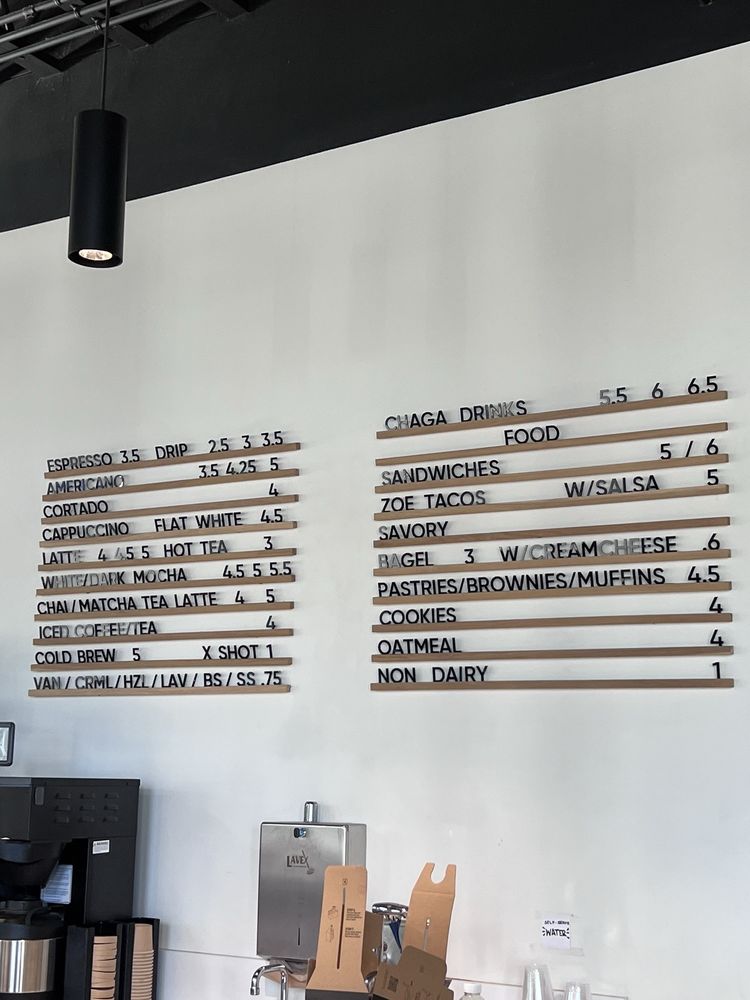 ESPRESSO 3.5 DRIP 2.5 3 3.5
AMERICANO 3.5 4.25 5
CORTADO 4
CAPPUCCINO FLAT WHITE 4.5
LATTE 4 4.5 5 HOT TEA 3
WHITE/DARK MOCHA 4.5 5 5.5
CHAI/MATCHA TEA LATTE 4 5
ICED COFFEE/TEA 4
COLD BREW 5 X SHOT 1
VAN / CRML/HZL/LAV / BS / SS .75
CHAGA DRINKS 5.5 6 6.5
FOOD
SANDWICHES 5 / 6
ZOE TACOS W/SALSA 5
SAVORY
BAGEL 3 W/CREAMCHEESE .6
PASTRIES/BROWNIES/MUFFINS 4.5
COOKIES 4
OATMEAL 4
NON DAIRY 1
LAVEX
SELF-SERVE
WATER